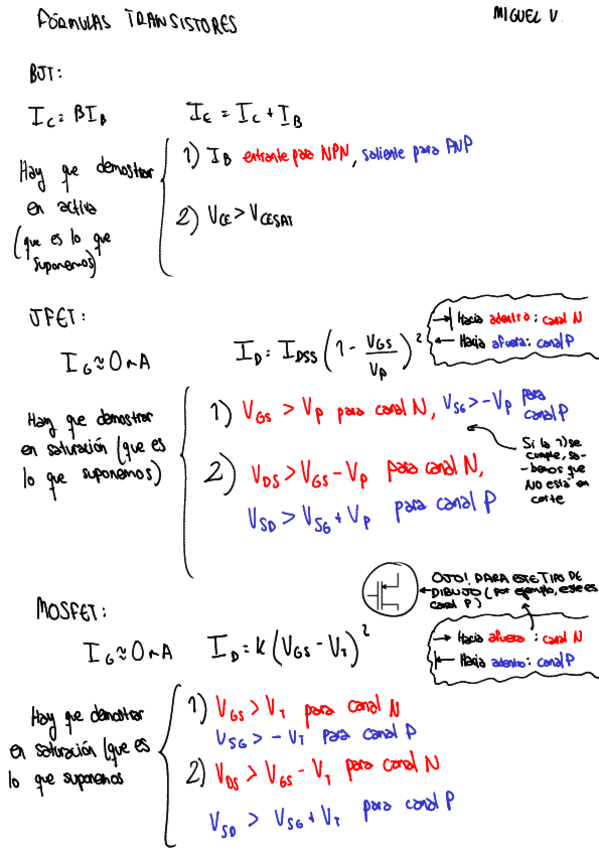 FÓRMULAS TRANSISTORES
MIGUEL V.
BJT:
I_C = βI_B
I_E = I_C + I_B
Hay que demostrar
en activa
(que es lo que
suponemos)
1) I_B entrante para NPN, saliente para PNP
2) V_CE > V_CESAT
JFET:
I_G ≈ 0 nA
I_D = I_DSS (1 - V_GS / V_P)²
Hacia adentro: canal N
Hacia afuera: canal P
Hay que demostrar
en saturación (que es
lo que suponemos)
1) V_GS > V_P para canal N, V_SG > -V_P para
canal P
Si la 1) se
cumple, sa-
-bemos que
NO está en
corte
2) V_DS > V_GS - V_P para canal N,
V_SD > V_SG + V_P para canal P
MOSFET:
OJO! PARA ESTE TIPO DE
DIBUJO (por ejemplo, este es
canal P)
I_G ≈ 0 nA
I_D = K (V_GS - V_T)²
Hacia afuera: canal N
Hacia adentro: canal P
Hay que demostrar
en saturación (que es
lo que suponemos
1) V_GS > V_T para canal N
V_SG > - V_T para canal P
2) V_DS > V_GS - V_T para canal N
V_SD > V_SG + V_T para canal P